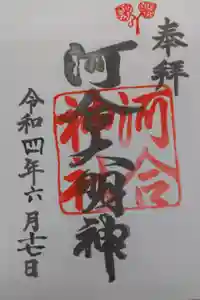 奉拝
河合
河合大明神
令和四年六月十七日